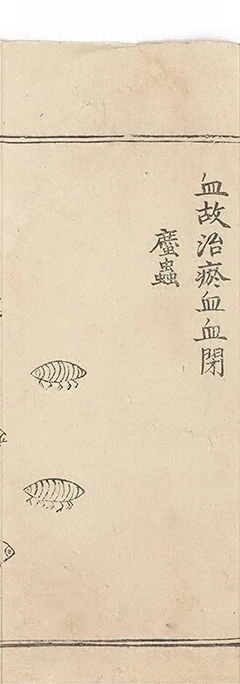 血故治瘀血血閉
䗪蟲